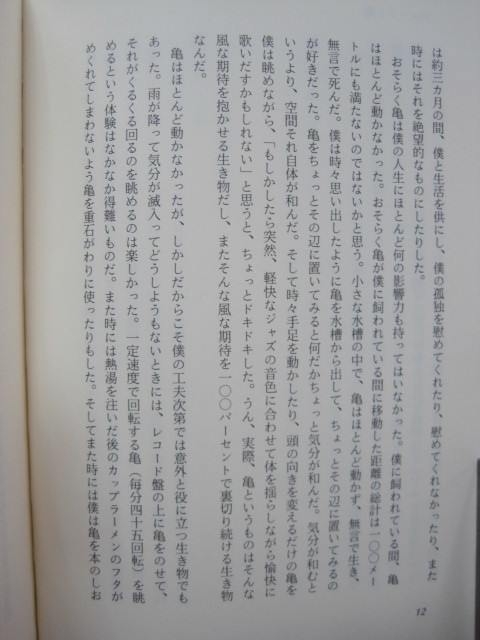 は約三カ月の間、僕と生活を供にし、僕の孤独を慰めてくれたり、慰めてくれなかったり、また
時にはそれを絶望的なものにしたりした。
おそらく亀は僕の人生にほとんど何の影響力も持ってはいなかった。僕に飼われている間、亀
はほとんど動かなかった。おそらく亀が僕に飼われている間に移動した距離の総計は一〇〇メー
トルにも満たないのではないかと思う。小さな水槽の中で、亀はほとんど動かず、無言で生き、
無言で死んだ。僕は時々思い出したように亀を水槽から出して、ちょっとその辺に置いてみるの
が好きだった。亀をちょっとその辺に置いてみると何だかちょっと気分が和んだ。気分が和むと
いうより、空間それ自体が和んだ。そして時々手足を動かしたり、頭の向きを変えるだけの亀を
僕は眺めながら、「もしかしたら突然、軽快なジャズの音色に合わせて体を揺らしながら愉快に
歌いだすかもしれない」と思うと、ちょっとドキドキした。うん、実際、亀というものはそんな
風な期待を抱かせる生き物だし、またそんな風な期待を一〇〇パーセントで裏切り続ける生き物
なんだ。
亀はほとんど動かなかったが、しかしだからこそ僕の工夫次第では意外と役に立つ生き物でも
あった。雨が降って気分が滅入ってどうしようもないときには、レコード盤の上に亀をのせて、
それがくるくる回るのを眺めるのは楽しかった。一定速度で回転する亀（毎分四十五回転）を眺
めるという体験はなかなか得難いものだ。また時には熱湯を注いだ後のカップラーメンのフタが
めくれてしまわないよう亀を重石がわりに使ったりもした。そしてまた時には僕は亀を本のしお
12